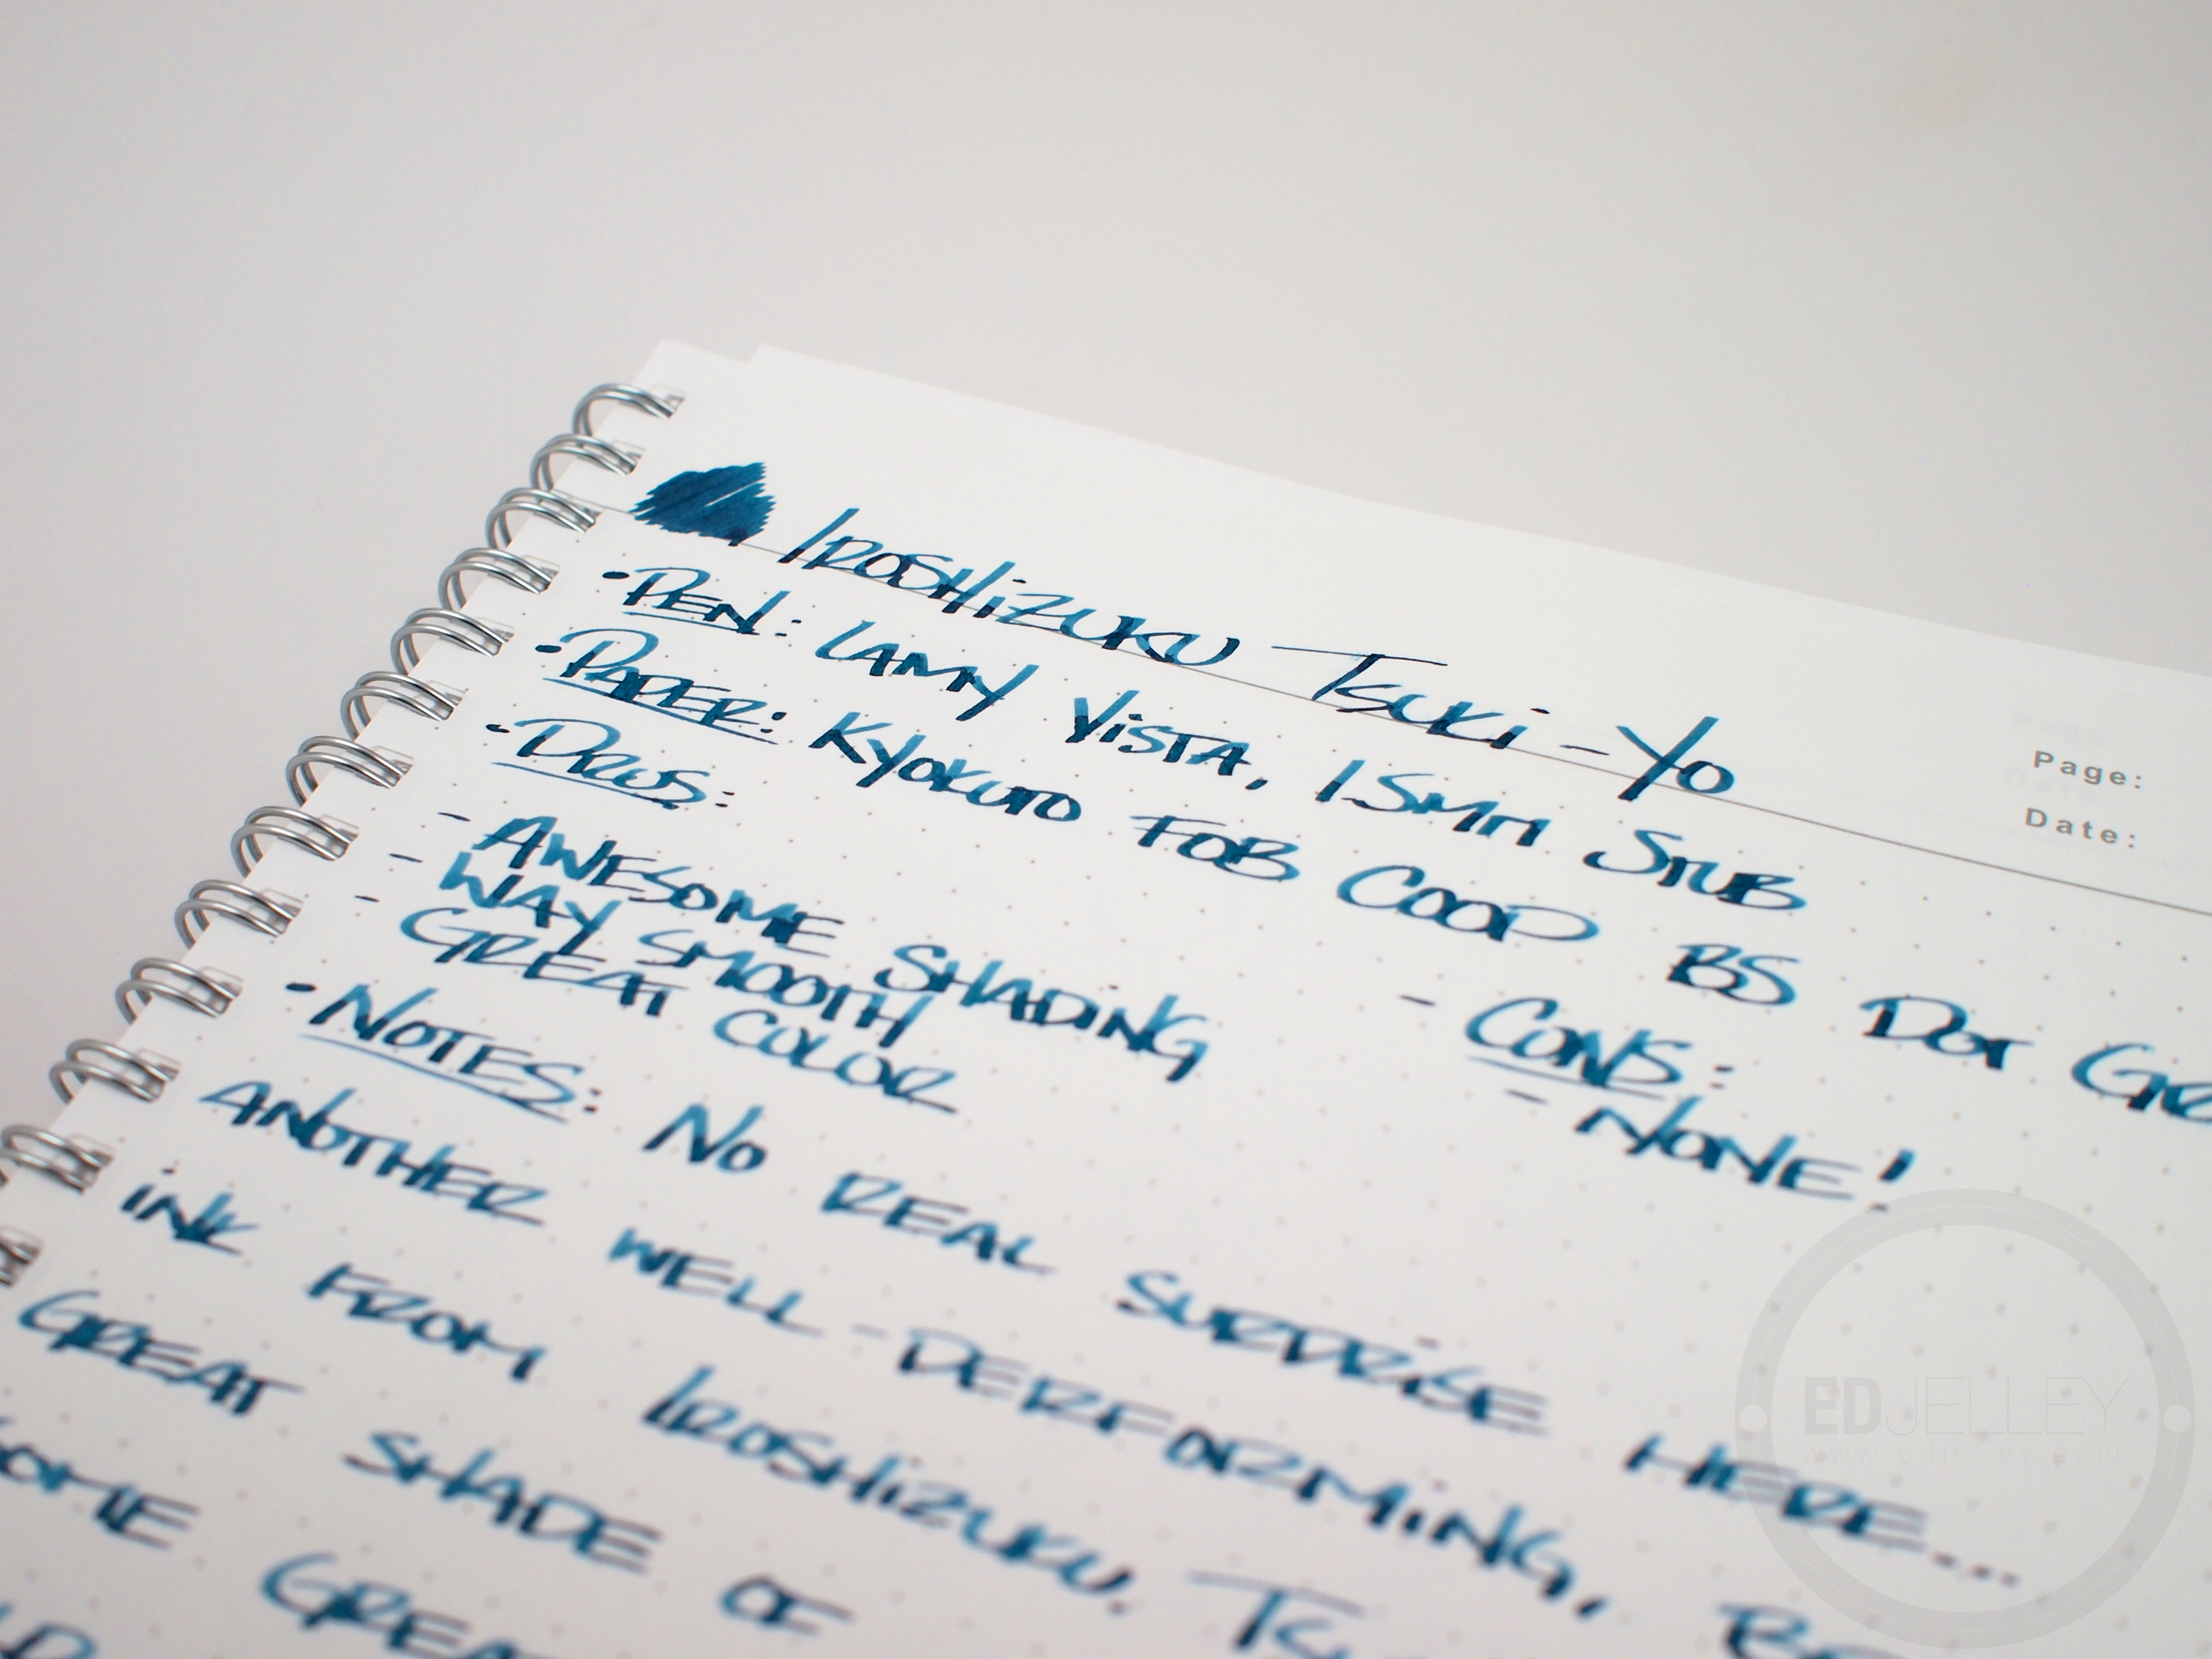 IROSHiZUKU TSUKi-YO
Page:
Date:
•PEN: LAMY ViSTA, 1.5MM STUB
•PAPER: KYOKUTO FOB COOP BS DOT
•PROS:
- AWESOME SHADiNG
- WAY SMOOTH
- GREAT COLOR
- CONS:
- NONE!
•NOTES: NO REAL SURPRiSE HERE...
ANOTHER WELL-PERFORMiNG,
iNK FROM IROSHiZUKU.
GREAT SHADE OF
EDJELLEY
www.edjelley.com